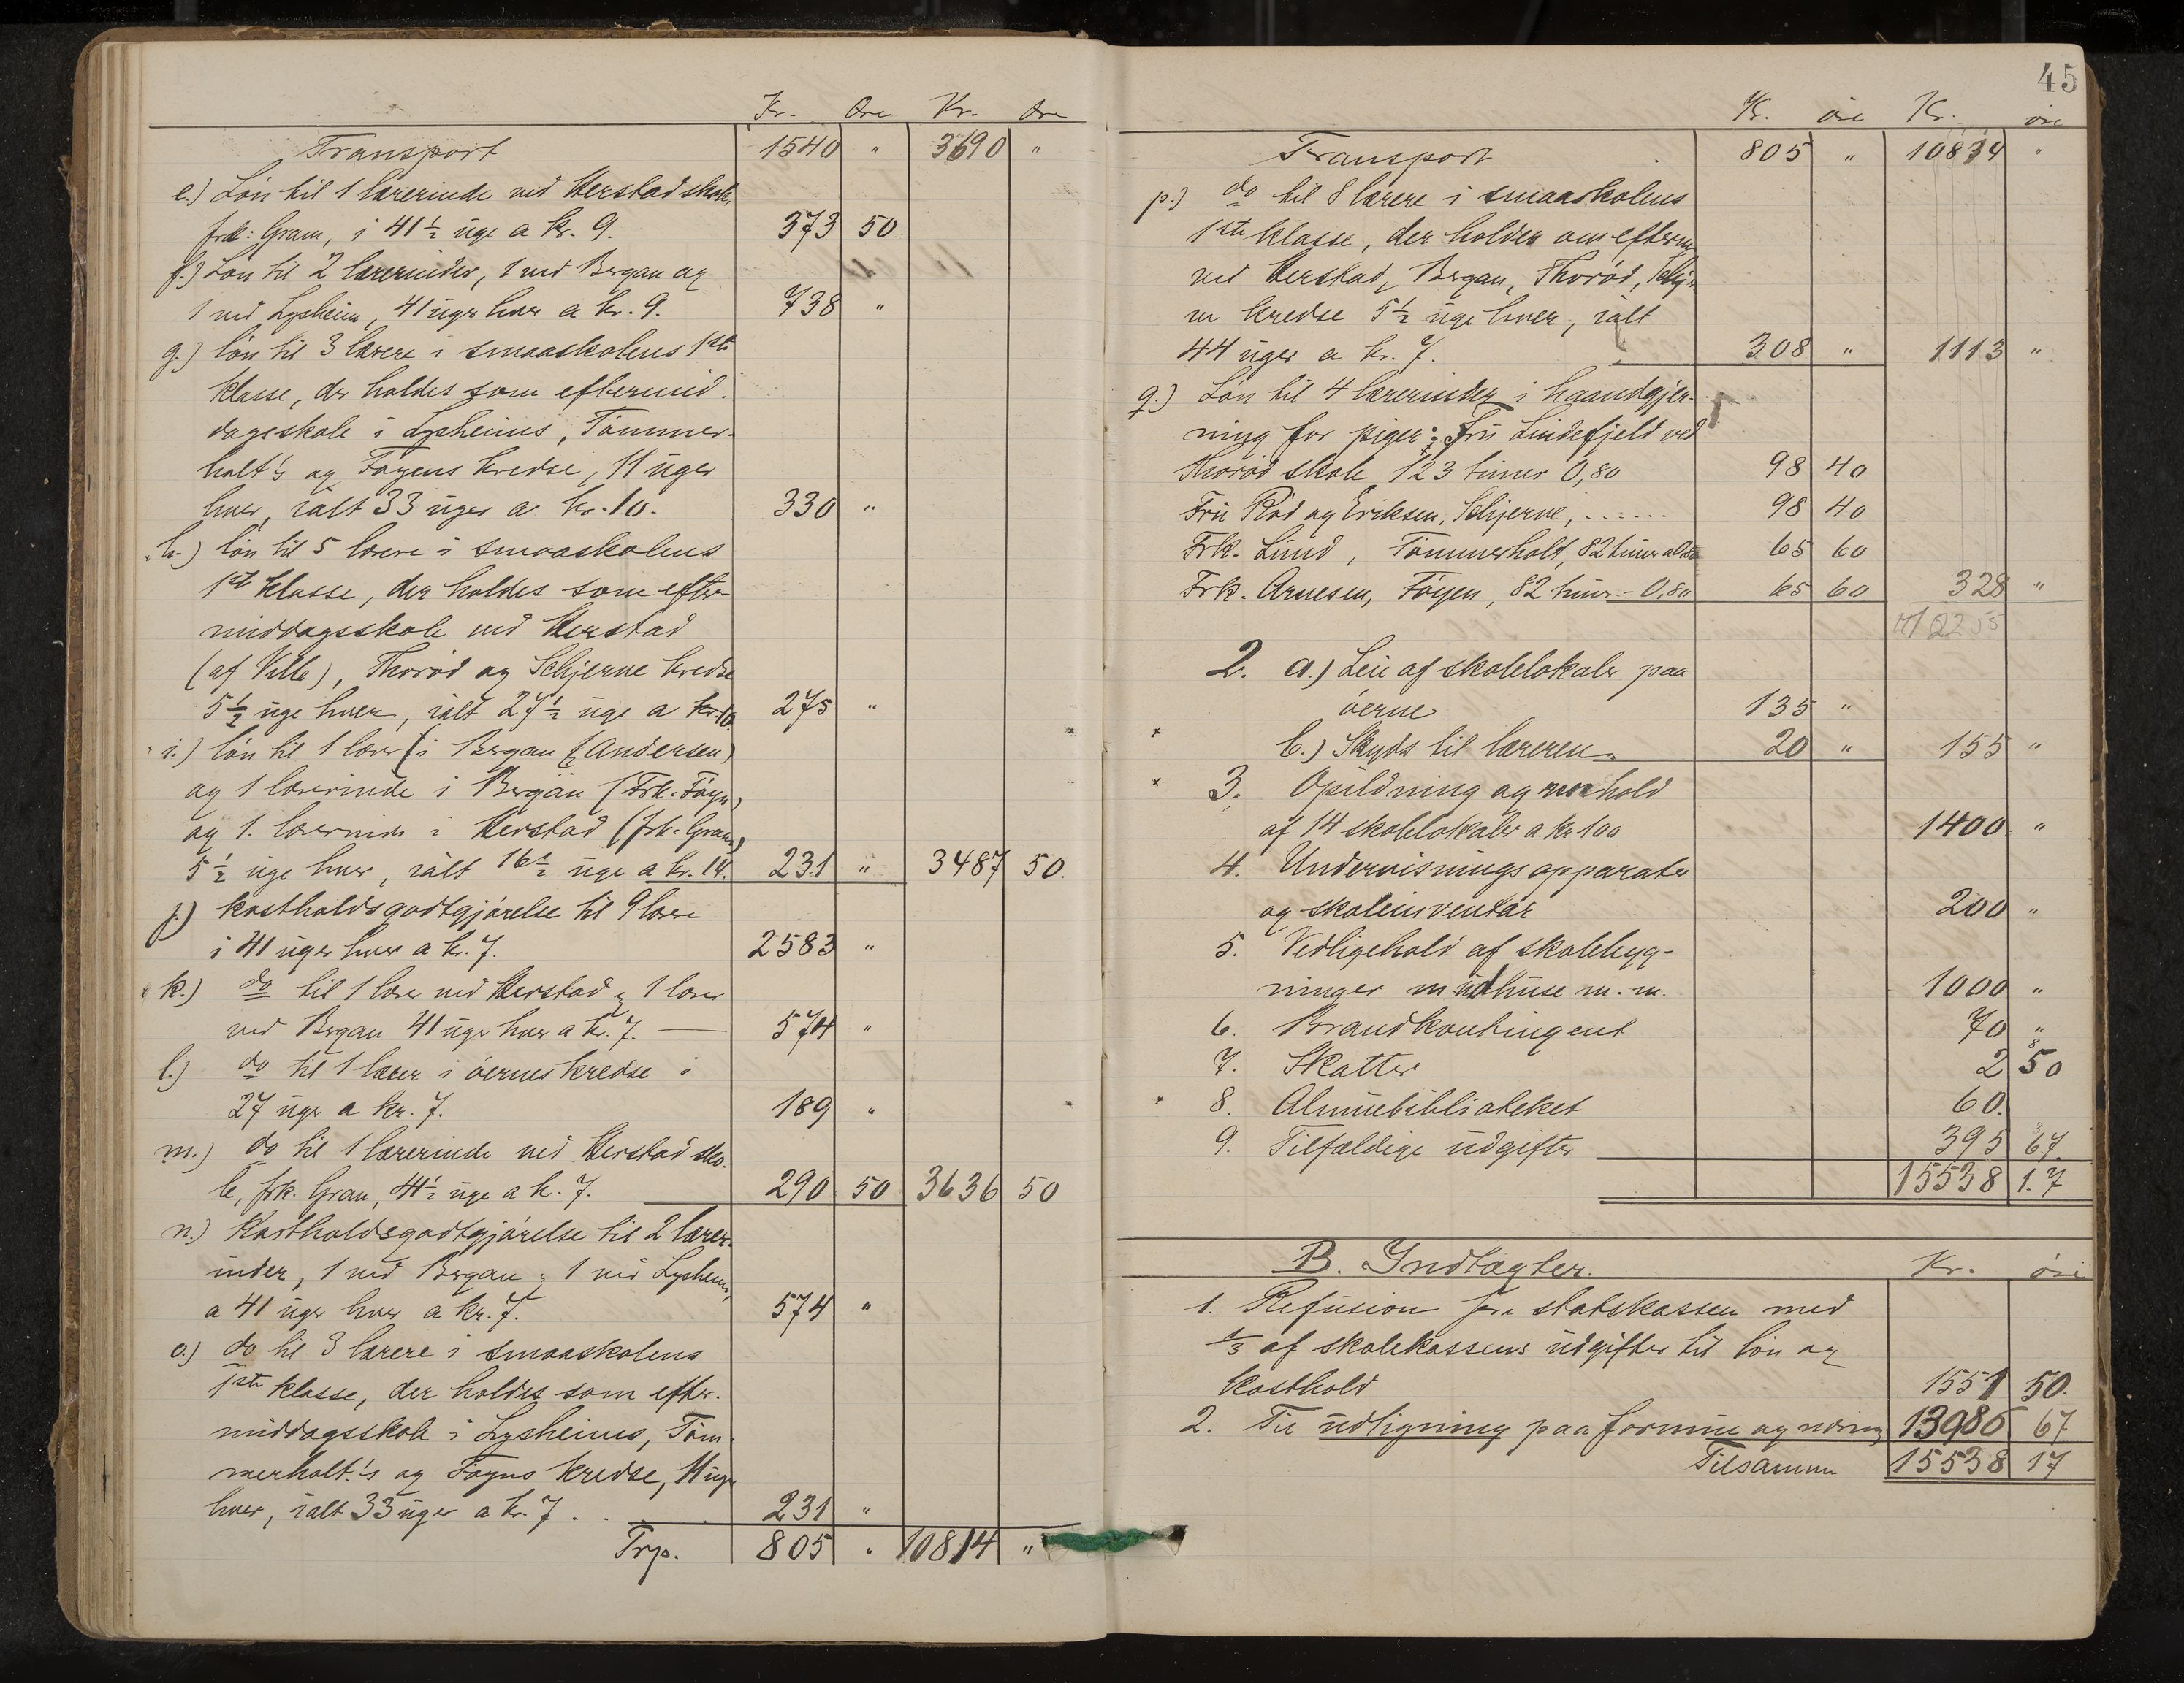 Kr. Øre Kr. Øre
Transport 1540 " 3690 "
e.) Løn til 1 lærerinde ved Herstad skole,
frk: Gram, i 41 1/2 uge a kr. 9. 373 50
f.) Løn til 2 lærerinder, 1 ved Bergan og
1 ved Lysheim, 41 uger hver a kr. 9. 738 "
g.) løn til 3 lærere i smaaskolens 1ste
klasse, der holdes som eftermid-
dagsskole i Lysheims, Tømmer-
holt's og Føyens kredse, 11 uger
hver, ialt 33 uger a kr. 10. 330 "
h.) løn til 5 lærere i smaaskolens
1ste klasse, der holdes som efter-
middagsskole ved Herstad
(af Ville), Thorød og Schjerne kredse
5 1/2 uge hver, ialt 27 1/2 uge a kr. 10. 275 "
i.) løn til 1 lærer (i Bergan (Andersen)
og 1 lærerinde i Bergan (Frk. Føyn)
og 1. lærerinde i Herstad (frk. Gram)
5 1/2 uge hver, ialt 16 1/2 uge a kr. 14. 231 " 3487 50.
j.) kostholdsgodtgjørelse til 9 lærere
i 41 uger hver a kr. 7. 2583 "
k.) do til 1 lærer ved Herstad & 1 lærer
ved Bergan 41 uger hver a kr. 7. 574 "
l.) do til 1 lærer i øernes kredse i
27 uger a kr. 7. 189 "
m.) do til 1 lærerinde ved Herstad sko-
le, frk. Gram, 41 1/2 uge a kr. 7. 290 50 3636 50
n.) Kostholdsgodtgjørelse til 2 lærer-
inder, 1 ved Bergan & 1 ved Lysheim,
a 41 uger hver a kr. 7. 574 "
o.) do til 3 lærere i smaaskolens
1ste klasse, der holdes som efter-
middagsskole i Lysheims, Tøm-
merholt's og Føyns kredse, 11 uger
hver, ialt 33 uger a kr. 7. 231 "
Trp. 805 " 10814 "
45
Kr. øre Kr. øre
Transport 805 " 10814 "
p.) do til 8 lærere i smaaskolens
1ste klasse, der holdes om efterm.
ved Herstad, Bergan, Thorød, Schjer-
ne kredse 5 1/2 uge hver, ialt
44 uger a kr. 7. 308 " 1113 "
q.) Løn til 4 lærerinder i haandgjer-
ning for piger: Fru Lindefjeld ved
Thorød skole 123 timer 0,80 98 40
Fru Rød og Eriksen, Schjerne, ...... 98 40
Frk. Lund, Tømmerholt, 82 timer a 0,80 65 60
Frk. Arnesen, Føyen, 82 timer - 0,80 65 60 328 "
12255
2. a.) Leie af skolelokaler paa
øerne 135 "
b.) Skyds til læreren. 20 " 155 "
3. Opildning og renhold
af 14 skolelokaler a kr 100 1400 "
4. Undervisningsapparater
og skoleinventar 200 "
5. Vedligehold af skolebyg-
ninger m. udhuse m. m. 1000 "
6. Brandkontingent 70 "
7. Skatter 2 50
8. Almuebiblioteket 60.
9. Tilfældige udgifter 395 67.
15538 1.7
B. Indtægter. Kr. øre
1. Refusion fra statskassen med
1/3 af skolekassens udgifter til løn og
kosthold 1551 50.
2. Til udligning paa formue og næring 13986 67
Tilsammen 15538 17